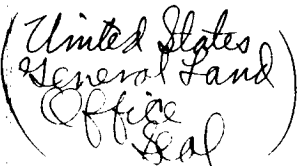 (United States
General Land
Office
Seal)